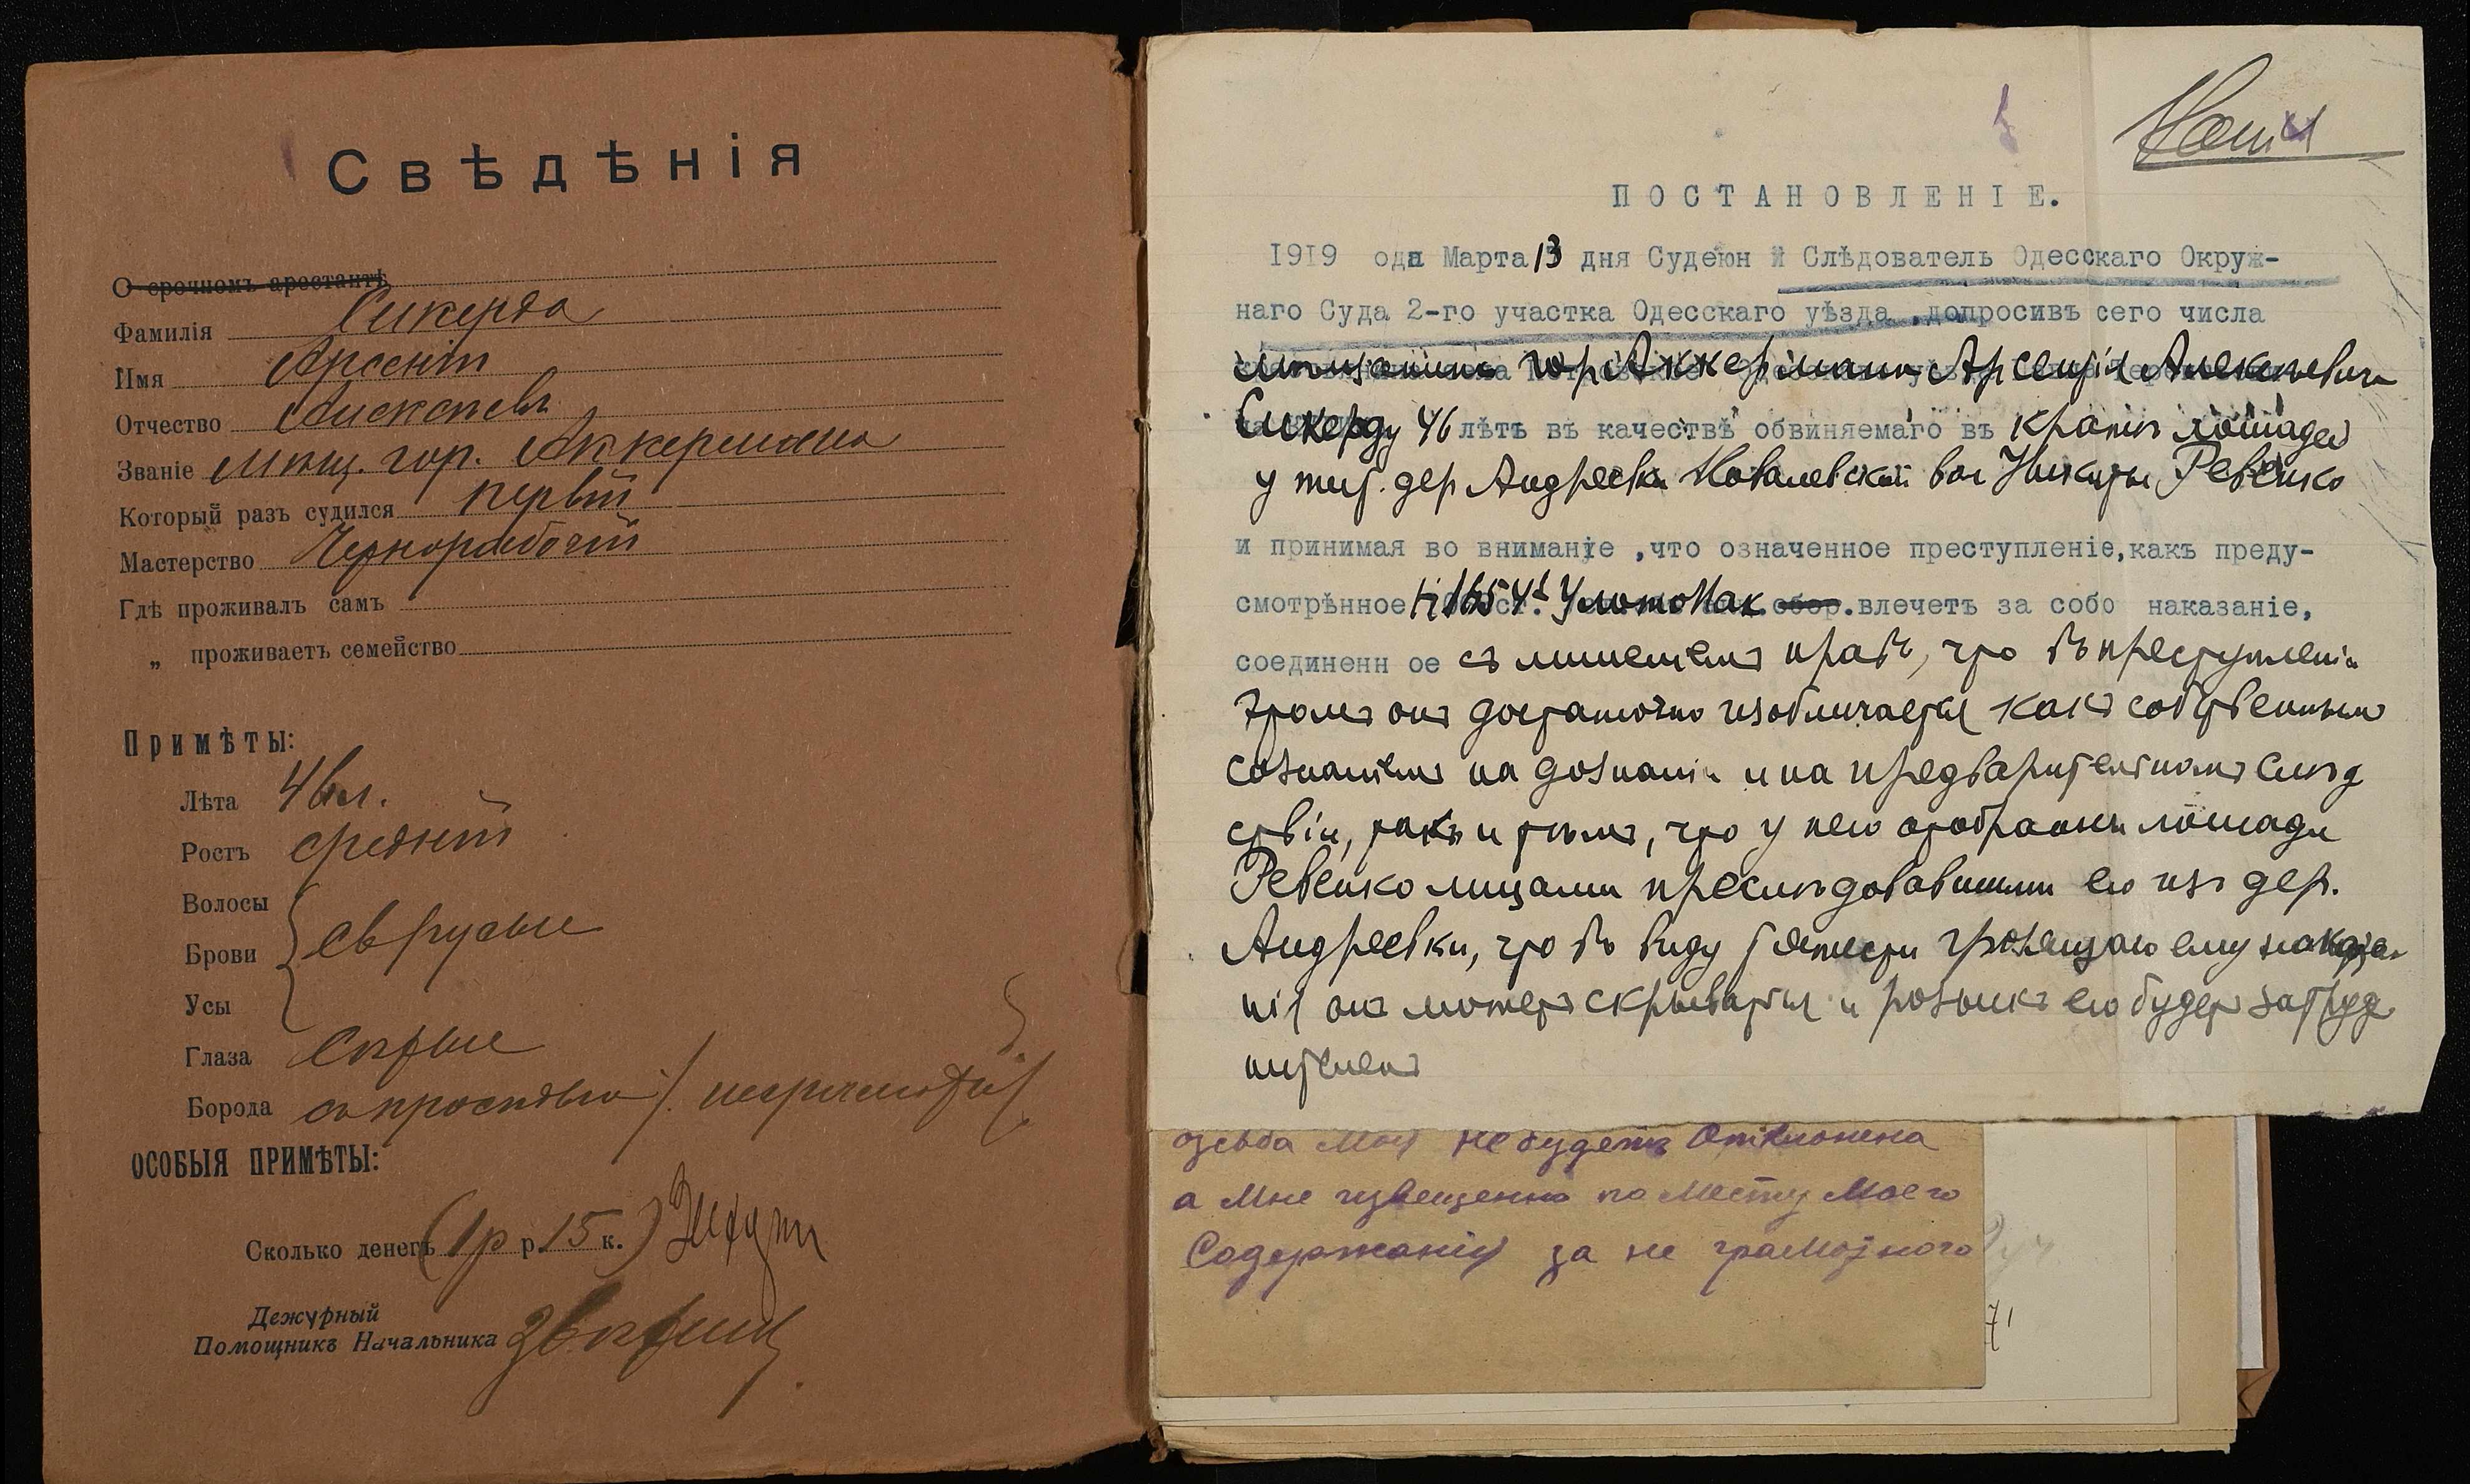 Свѣдѣнія
О срочномъ арестантѣ
Фамилія Сикерда
Имя Арсеній
Отчество Алексѣевъ
Званіе Мѣщ. гор. Аккермана
Который разъ судился первый
Мастерство Чернорабочій
Гдѣ проживалъ самъ
„ проживаетъ семейство
Примѣты:
Лѣта 46 л.
Ростъ средній
Волосы
Брови св русые
Усы
Глаза Сѣрые
Борода съ просѣдью /. неграмотный
ОСОБЫЯ ПРИМѢТЫ:
Сколько денегъ (1р р. 15 к.)
Дежурный
Помощникъ Начальника
ПОСТАНОВЛЕНІЕ.
1919 ода Марта 13 дня Судебн й Слѣдователь Одесскаго Окруж-
наго Суда 2-го участка Одесскаго уѣзда ,допросивъ сего числа
мѣщанина гор Аккермана Арсенія Алексѣевича
Сикерду 46 лѣтъ въ качествѣ обвиняемаго въ кражѣ лошадей
у жит. дер Андреевки Ковалевской вол Никиты Ревенко
и принимая во вниманіе ,что означенное преступленіе,какъ преду-
смотрѣнное 1654¹ Улож о Нак обор. влечетъ за собо наказаніе,
соединенн ое съ лишеніемъ правъ, что въ преступленіи
этомъ онъ достаточно изобличается какъ собственнымъ
сознаніемъ на дознаніи и на предварительномъ слѣд
ствіи, такъ и тѣмъ, что у него отобраны лошади
Ревенко лицами преслѣдовавшими его изъ дер.
Андреевки, что въ виду тяжести грозящаго ему наказа-
нія онъ можетъ скрываться и розыскъ его будетъ затруд
нителенъ
озьба Моя не будетъ Отклонена
а Мне извещенно по Месту Моего
Содержанія за не грамотного